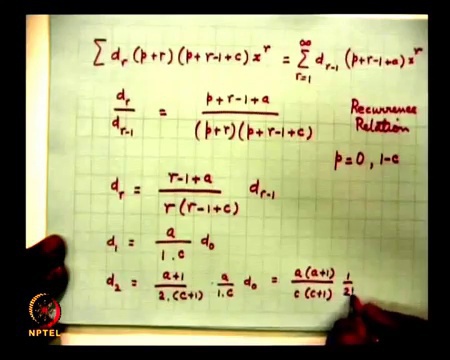 ∑ d_r (p+r) (p+r-1+c) x^r = ∑_{r=1}^{∞} d_{r-1} (p+r-1+a) x^r
d_r / d_{r-1} = (p+r-1+a) / ((p+r) (p+r-1+c))
Recurrence
Relation
p=0, 1-c
d_r = (r-1+a) / (r (r-1+c)) d_{r-1}
d_1 = a / (1.c) d_0
d_2 = (a+1) / (2.(c+1)) . a / (1.c) d_0 = a(a+1) / (c(c+1)) 1 / 2!
NPTEL